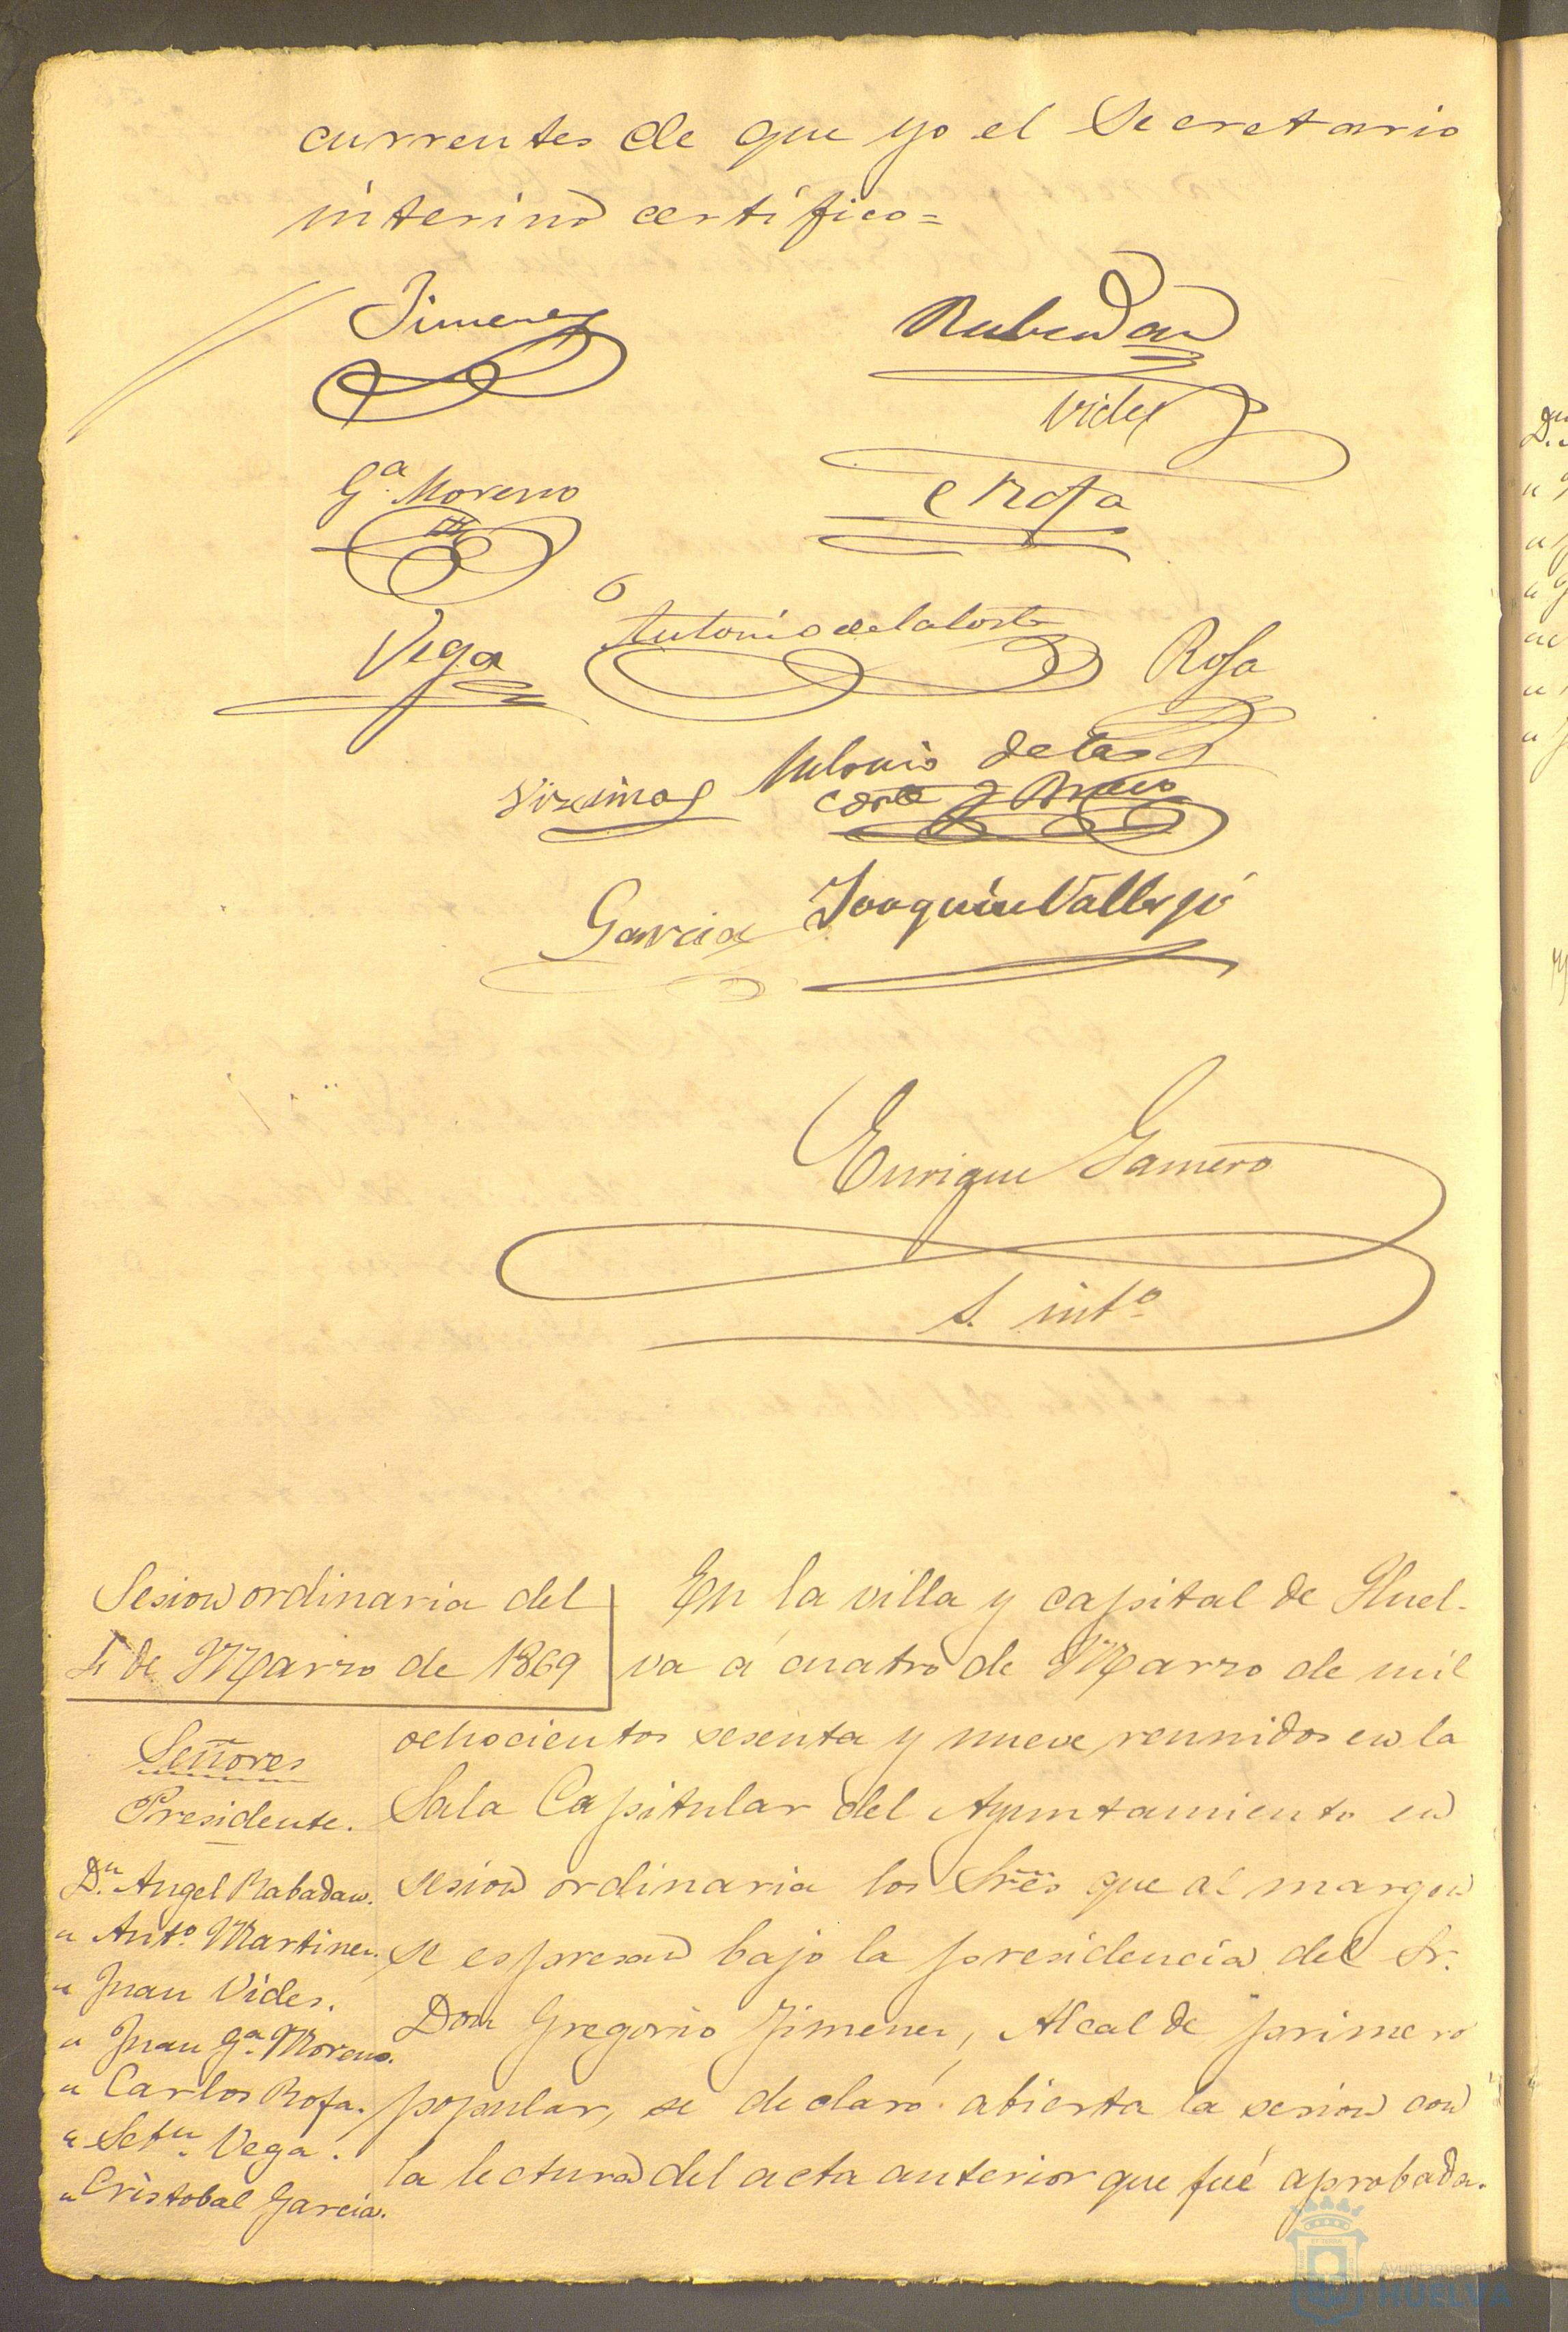 currentes de que yo el Secretario
interino certifico=
Jimenez
Rabadan
Vides
Gª Moreno
C Rofa
Vega
Antonio de la Corte
Rofa
Antonio de la
Corte y Bravo
Garcia
Joaquin Vallejo
Enrique Gamero
S. intº
Sesion ordinaria del
4 de Marzo de 1869
Señores
Presidente.
Dn. Angel Rabadan.
" Antº Martinez.
" Juan Vides.
" Juan Gª Moreno.
" Carlos Rofa.
" Setn. Vega.
" Cristobal Garcia.
En la villa y capital de Huel-
va á cuatro de Marzo de mil
ochocientos sesenta y nueve reunidos en la
Sala Capitular del Ayuntamiento en
sesion ordinaria los Sres que al margen
se espresan bajo la presidencia del Sr.
Don Gregorio Jimenez, Alcalde primero
popular, se declaró abierta la sesion con
la lectura del acta anterior que fué aprobada.
Ayuntamiento
HUELVA